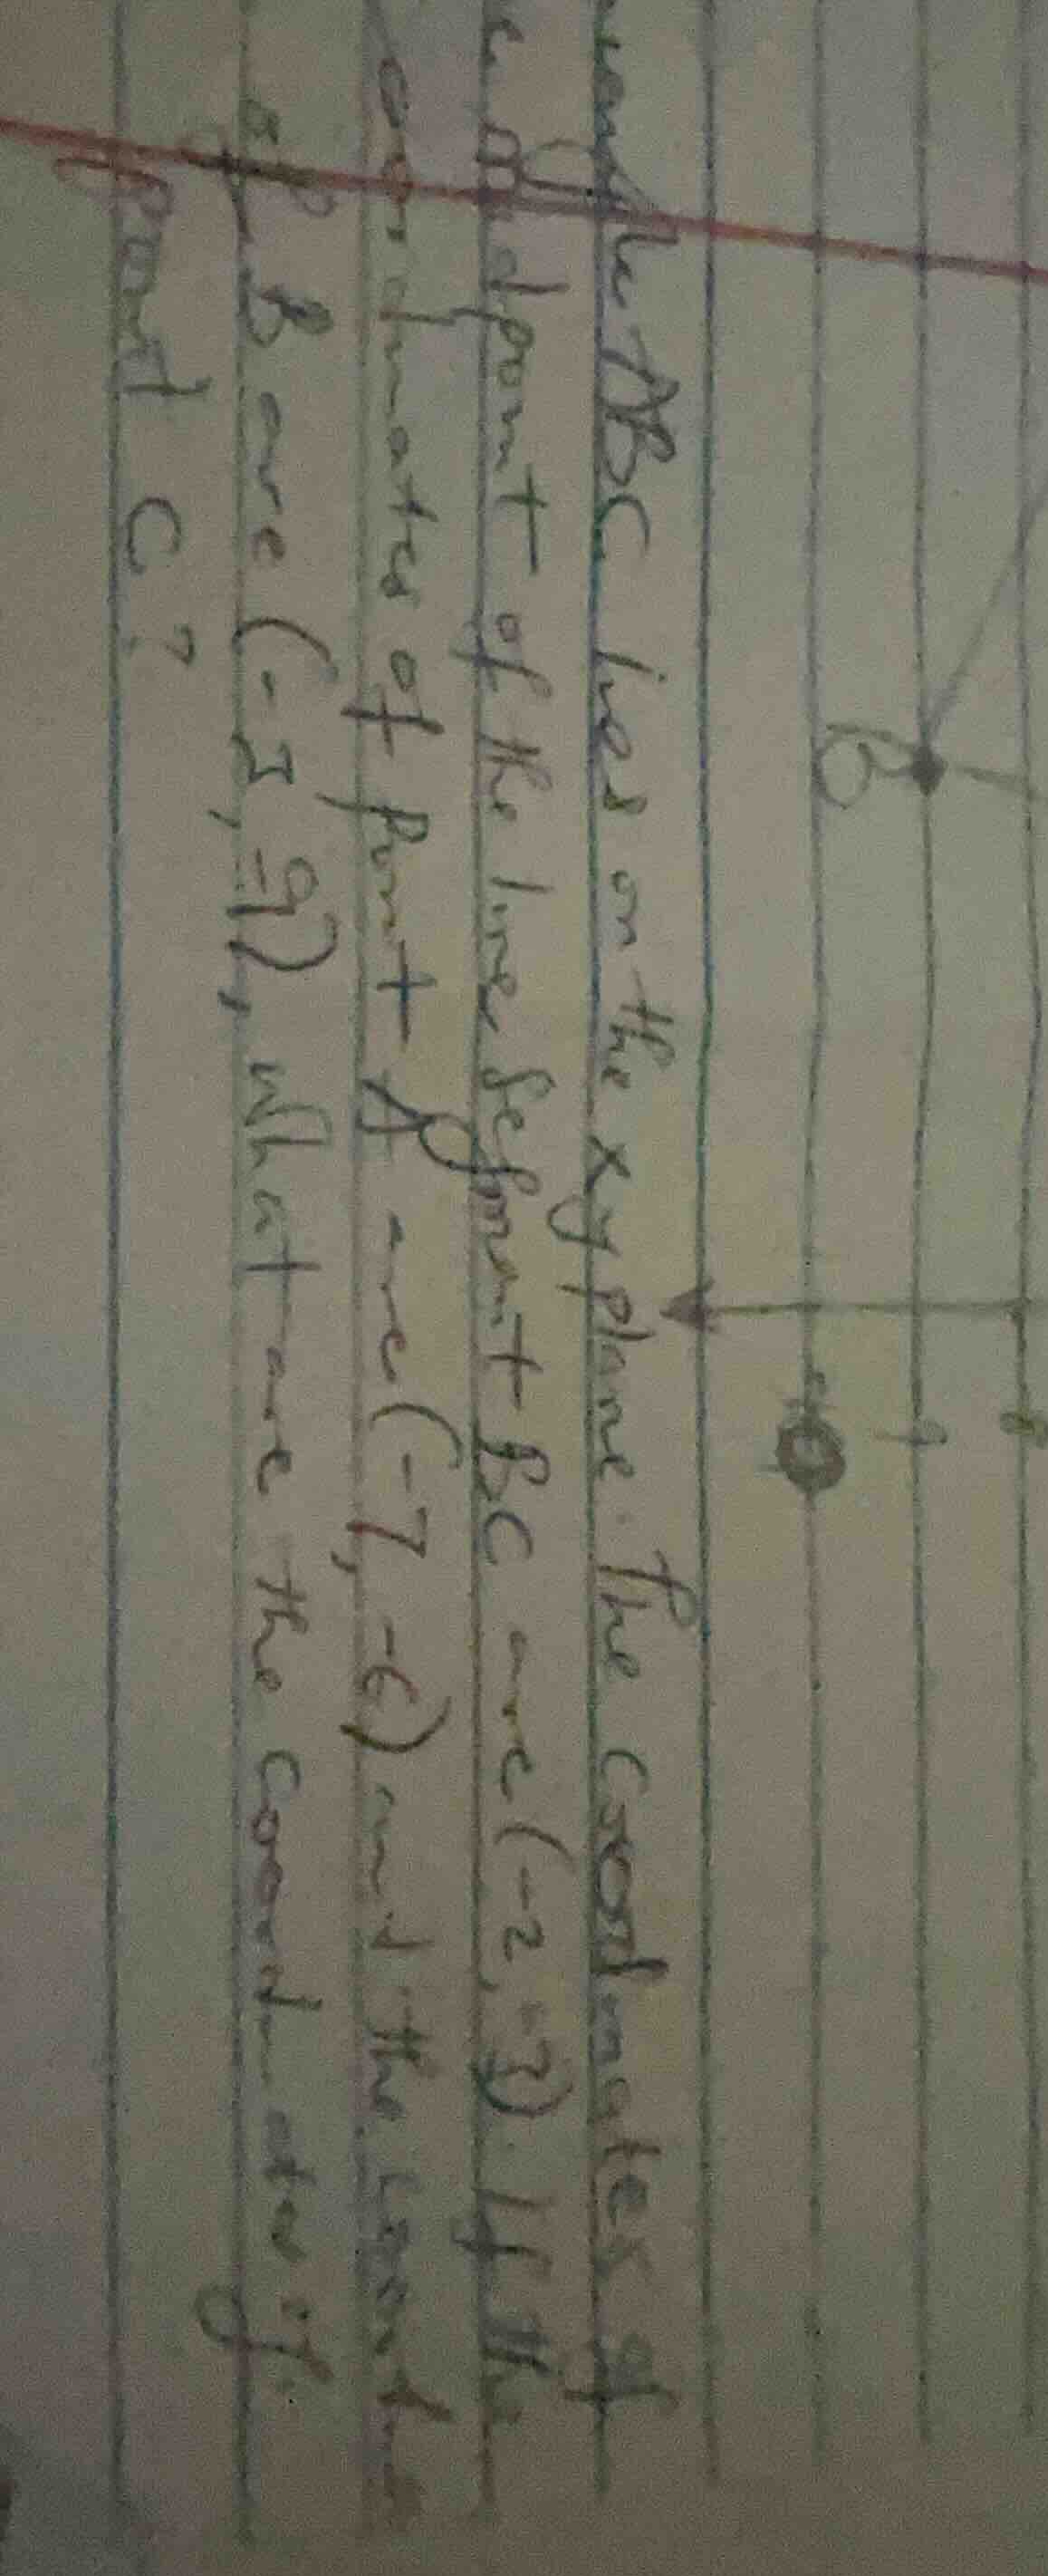 B
ABC lies on the xy plane. The coordinates of
midpoint of the line segment BC are (-2,-3). If the
coordinates of point A are (-7,-6) and the
of B are (-3,-9), what are the coordinates of
point C?